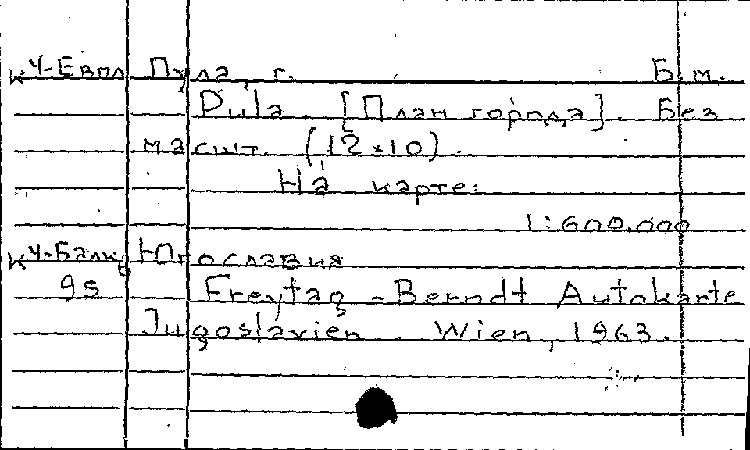 к Ч-Евпл Пула, г. Б.м.
Pula [План города]. Без
масшт. (12×10).
На карте:
1:600.000
к Ч-Балк Югославия
9s Freytag-Berndt Autokarte
Jugoslavien. Wien, 1963.